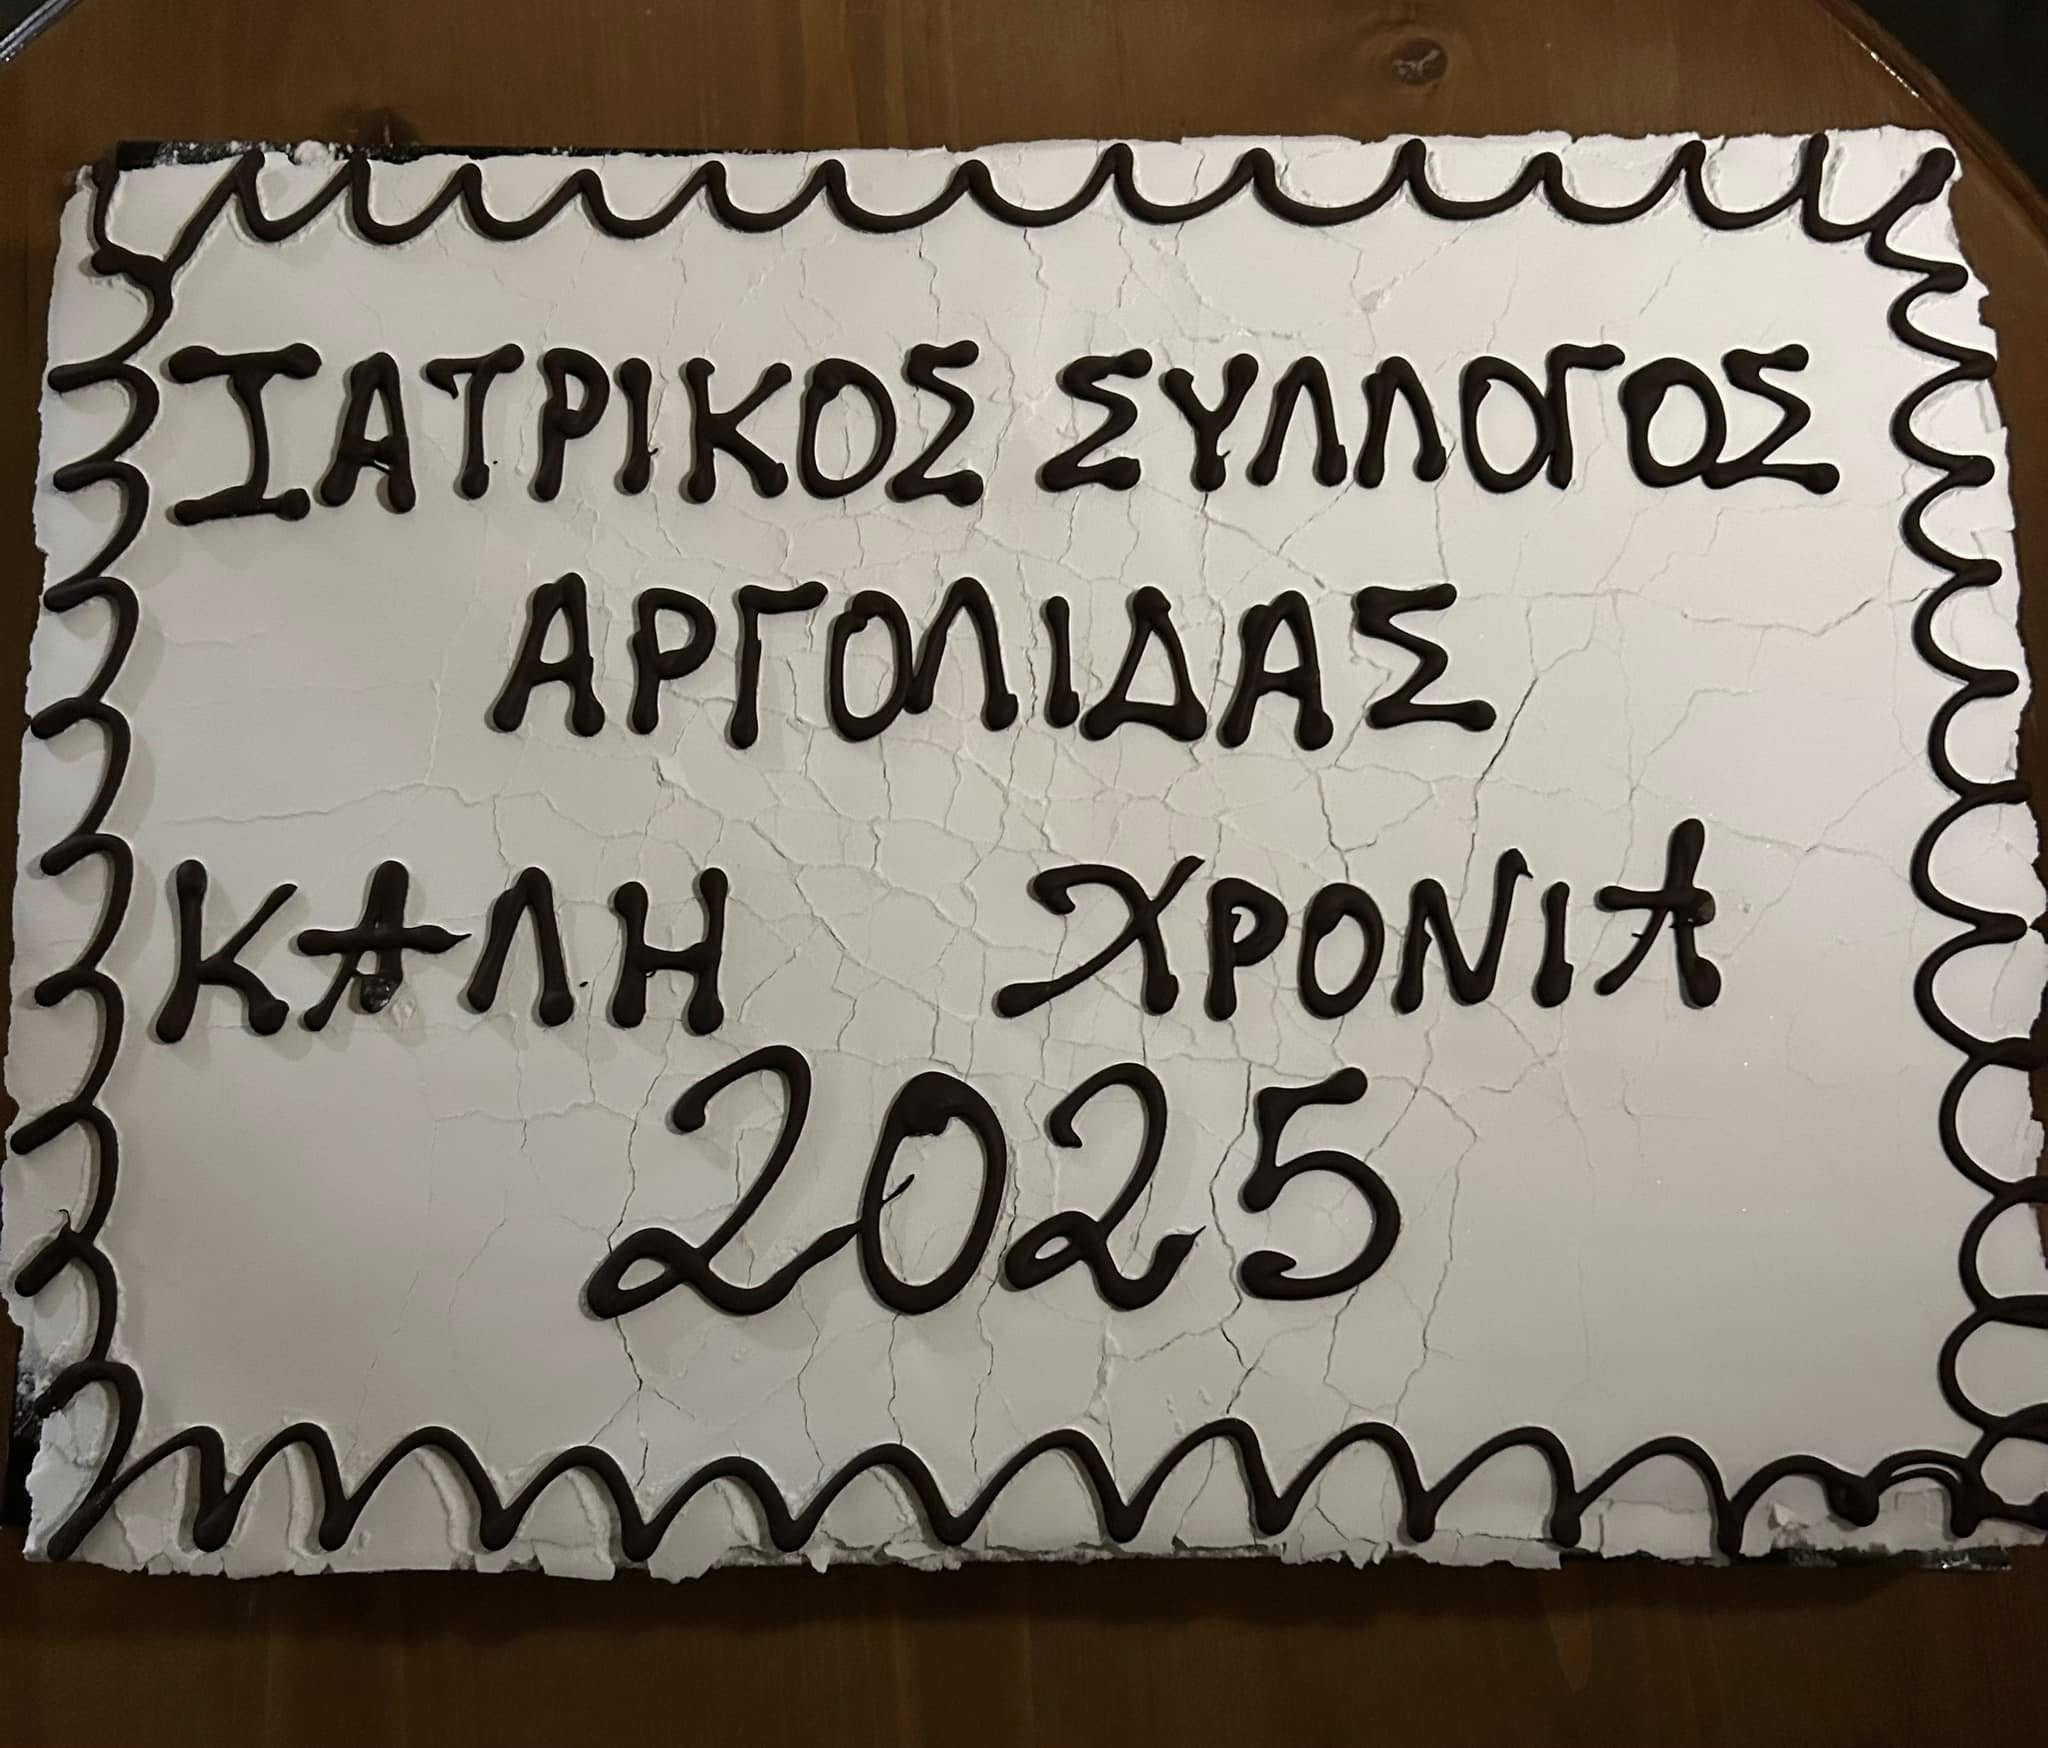 ΙΑΤΡΙΚΟΣ ΣΥΛΛΟΓΟΣ
ΑΡΓΟΛΙΔΑΣ
ΚΑΛΗ ΧΡΟΝΙΑ
2025